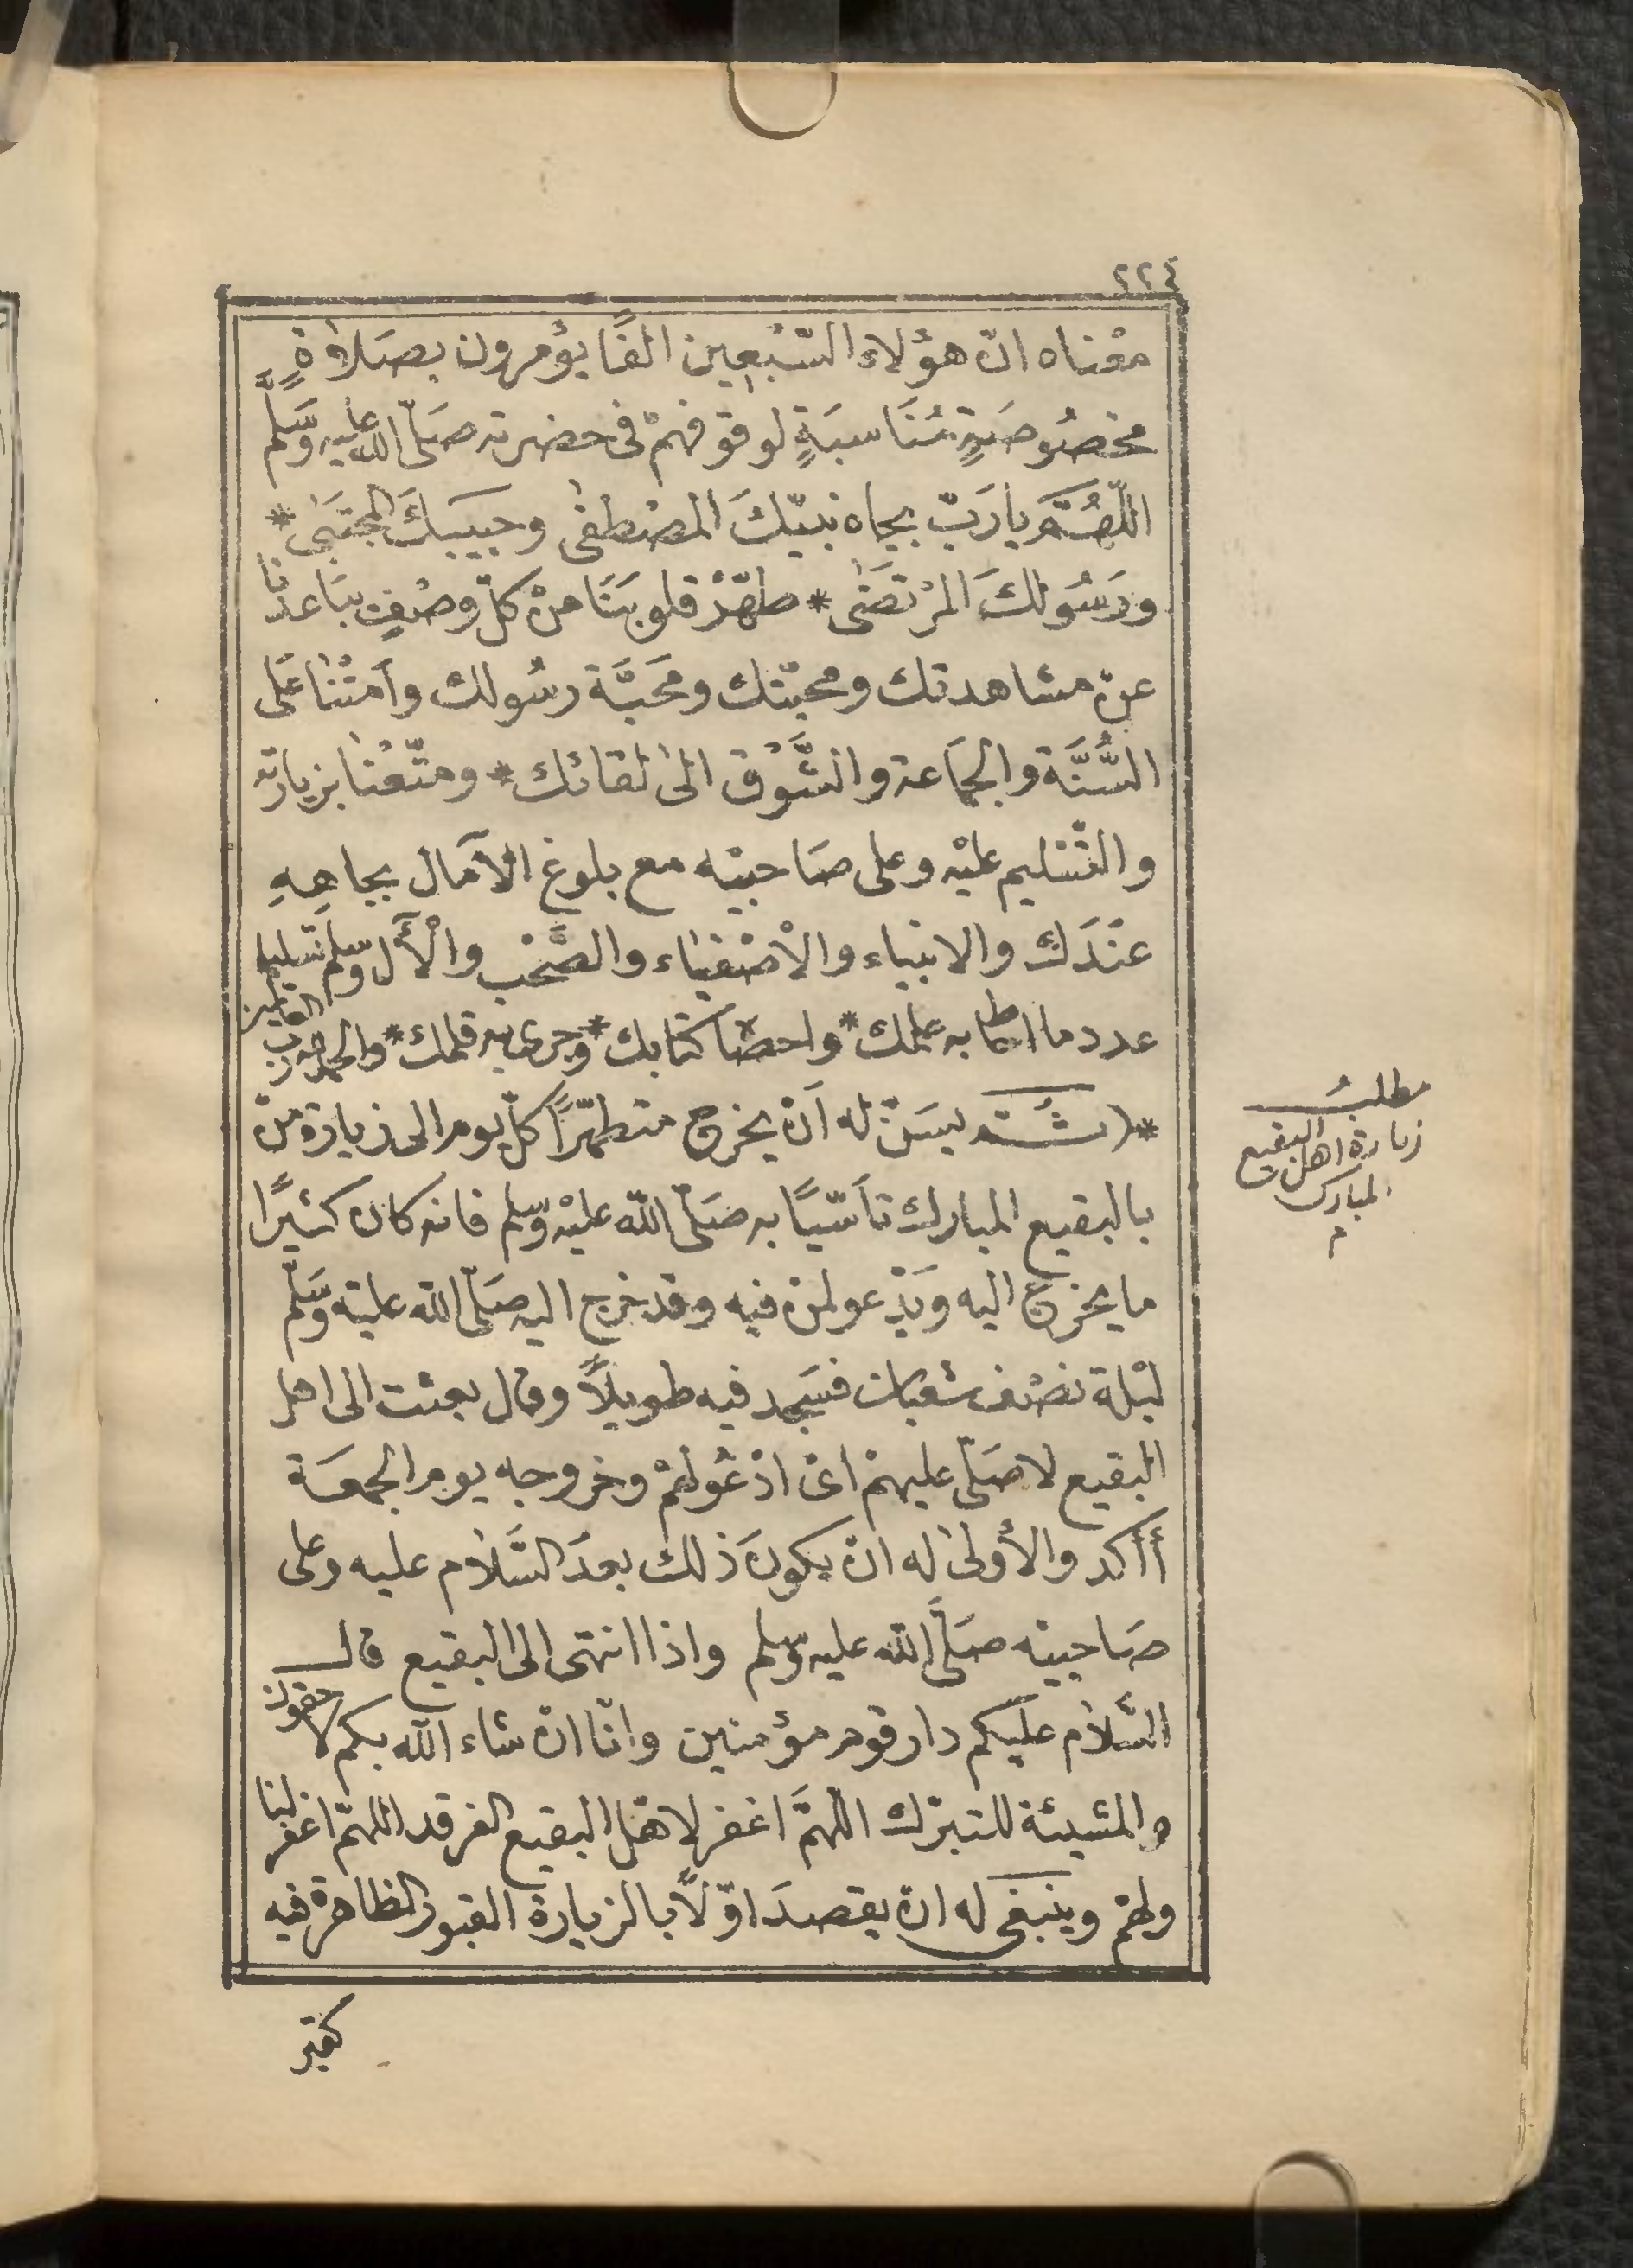 ٢٢٤
معْناه انّ هؤلاء السّبْعين الفًا يؤمرون بصَلاةٍ
مخصُوصَةٍ مُنَاسبَةٍ لوقوفهمْ فى حضرته صَلّى الله عليه وَسَلَّم
اللّهُمَّ يارَبّ بجاه نبيّكَ المصْطفٰى وحبيبكَ المجتَبٰى *
ورَسُولكَ المرْتضَى * طهّرْ قلوبَنَا منْ كلّ وصْفٍ يبَاعدنا
عنْ مشاهدتك ومحبّتك ومَحَبَّة رسُولك وأمتْنا عَلى
السُّنَّة والجمَاعة والشَّوْق الىٰ لقائك * ومتّعْنا بزيارته
والتّسْليم عليْه وعلى صَاحبيْه مع بلوغ الآمَال بجاهِهِ
عنْدَك والانبياء والاْصْفيَاء والصَّحْب والْآل وسلم تسليم
عدد ما احاط به علمك * واحصَا كتابك * وجرى به قلمك * والحمد لله رب العالمين
*( ثمَّ يسَنّ له اَنْ يخرج متطهّرًا كلّ يوم الى زيارة منْ
بالبقيع المبارك تأسّيًا به صَلّى اللّه عليْه وسّلم فانه كان كثيرًا
ما يخرج اليه وَيَدْعو لمنْ فيه وقد خرج اليه صَلّى الله عليْه وَسَلّم
ليْلة نصْف شعبان فسَجد فيه طويلاً وقال بعثت الى اهل
البقيع لاصَلّى عليهمْ اىْ ادْعُو لهُمْ وخروجه يوم الجمعَة
أأكد والأولىٰ له انْ يكونَ ذٰلك بعدَ السَّلام عليه وعلى
صَاحبيْه صَلَّى الله عليه وسّلم واذا انتهى الى البقيع قال
السَّلام عليْكم دار قوم مؤمنين وانّا انْ شاء الله بكم لاحقون
والمشيئة للتبرّك اللهمَّ اغفر لاهْل البقيع الغرقد اللهمّ اغفر لنا
ولهمْ وينبغى له انْ يقصدَ اوّلًا بالزيارة القبور الظاهرة فيه
كقبر
مطلبُ
زيارة اهل البقيع
المبارك
م